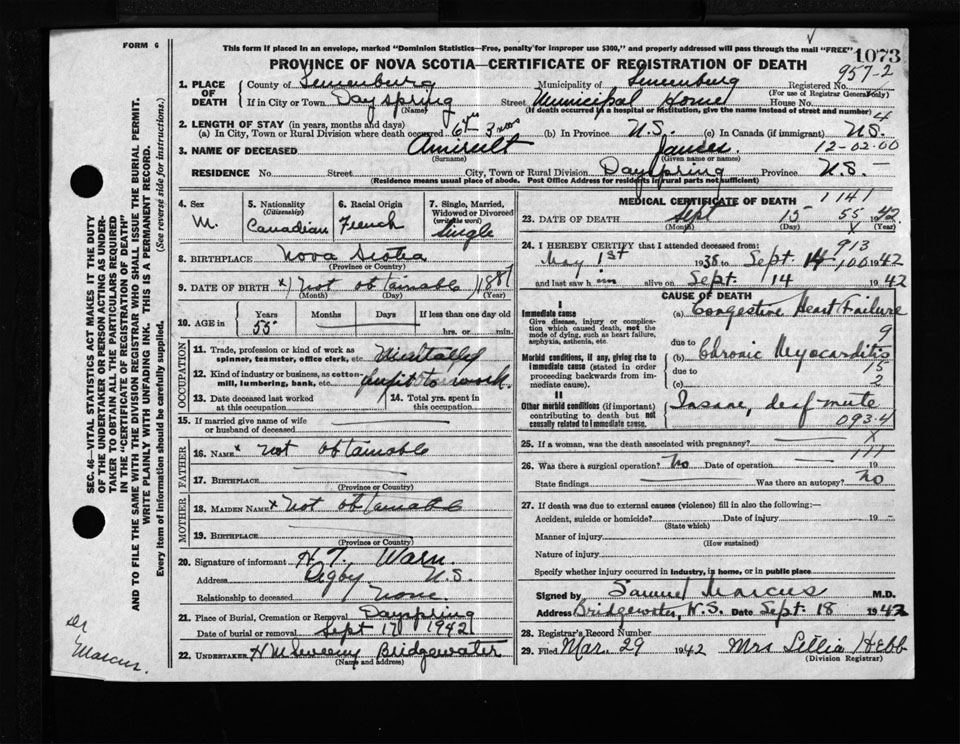 FORM 6
This form if placed in an envelope, marked "Dominion Statistics—Free, penalty for improper use $300," and properly addressed will pass through the mail "FREE"
1073
PROVINCE OF NOVA SCOTIA—CERTIFICATE OF REGISTRATION OF DEATH
957-2
1. PLACE OF DEATH
County of Lunenburg Municipality of Lunenburg Registered No.
(For use of Registrar Generally only)
If in City or Town Dayspring Street Municipal Home House No.
(Name) (If death occurred in a hospital or institution, give the name instead of street and number)
4
2. LENGTH OF STAY (in years, months and days)
(a) In City, Town or Rural Division where death occurred 6 yrs 3 mos (b) In Province N.S. (c) In Canada (if immigrant) N.S.
3. NAME OF DECEASED Amirault James. 12-02-00
(Surname) (Given name or names)
RESIDENCE No. Street City, Town or Rural Division Dayspring Province N.S.
(Residence means usual place of abode. Post Office Address for residents in rural parts not sufficient)
4. Sex M.
5. Nationality (Citizenship) Canadian
6. Racial Origin French
7. Single, Married, Widowed or Divorced (write the word) Single
8. BIRTHPLACE Nova Scotia
(Province or Country)
9. DATE OF BIRTH x) Not obtainable) 1887
(Month) (Day) (Year)
10. AGE in Years 55 Months Days If less than one day old
hrs. or min.
OCCUPATION
11. Trade, profession or kind of work as spinner, teamster, office clerk, etc. Mentally
12. Kind of industry or business, as cotton-mill, lumbering, bank, etc. unfit to work.
13. Date deceased last worked at this occupation
14. Total yrs. spent in this occupation
15. If married give name of wife or husband of deceased
FATHER
16. NAME x not obtainable
17. BIRTHPLACE
(Province or Country)
MOTHER
18. MAIDEN NAME x not obtainable
19. BIRTHPLACE
(Province or Country)
20. Signature of informant H. T. Warn
Address Digby N.S.
Relationship to deceased none
21. Place of Burial, Cremation or Removal Dayspring
Date of burial or removal Sept 17 1942
22. UNDERTAKER H M Sweeny Bridgewater
(Name and address)
MEDICAL CERTIFICATE OF DEATH
1141
23. DATE OF DEATH Sept 15 55 1942
(Month) (Day) (Year)
24. I HEREBY CERTIFY that I attended deceased from:
913
May 1st 1938 to Sept. 14 100 1942
and last saw him alive on Sept. 14 1942
CAUSE OF DEATH
I
Immediate cause
Give disease, injury or complication which caused death, not the mode of dying, such as heart failure, asphyxia, asthenia, etc.
(a) Congestive Heart Failure
9
due to
Morbid conditions, if any, giving rise to immediate cause (stated in order proceeding backwards from immediate cause).
(b) Chronic Myocarditis
15
due to
2
(c)
II
Other morbid conditions (if important) contributing to death but not causally related to immediate cause.
Insane, deaf mute
093-4
25. If a woman, was the death associated with pregnancy? X
111
26. Was there a surgical operation? No Date of operation 19
State findings Was there an autopsy? No
27. If death was due to external causes (violence) fill in also the following:—
Accident, suicide or homicide? Date of injury 19
(State which)
Manner of injury
(How sustained)
Nature of injury
Specify whether injury occurred in industry, in home, or in public place
Signed by Samuel Marcus M.D.
Address Bridgewater, N.S. Date Sept. 18 1942
28. Registrar's Record Number
29. Filed Mar. 29 1942 Mrs Lillia Hebb
(Division Registrar)
SEC. 46—VITAL STATISTICS ACT MAKES IT THE DUTY
OF THE UNDERTAKER OR PERSON ACTING AS UNDER-
TAKER TO OBTAIN ALL THE PARTICULARS REQUIRED
IN THE "CERTIFICATE OF REGISTRATION OF DEATH"
AND TO FILE THE SAME WITH THE DIVISION REGISTRAR WHO SHALL ISSUE THE BURIAL PERMIT.
WRITE PLAINLY WITH UNFADING INK. THIS IS A PERMANENT RECORD.
Every item of information should be carefully supplied. (See reverse side for instructions.)
Dr
Marcus.